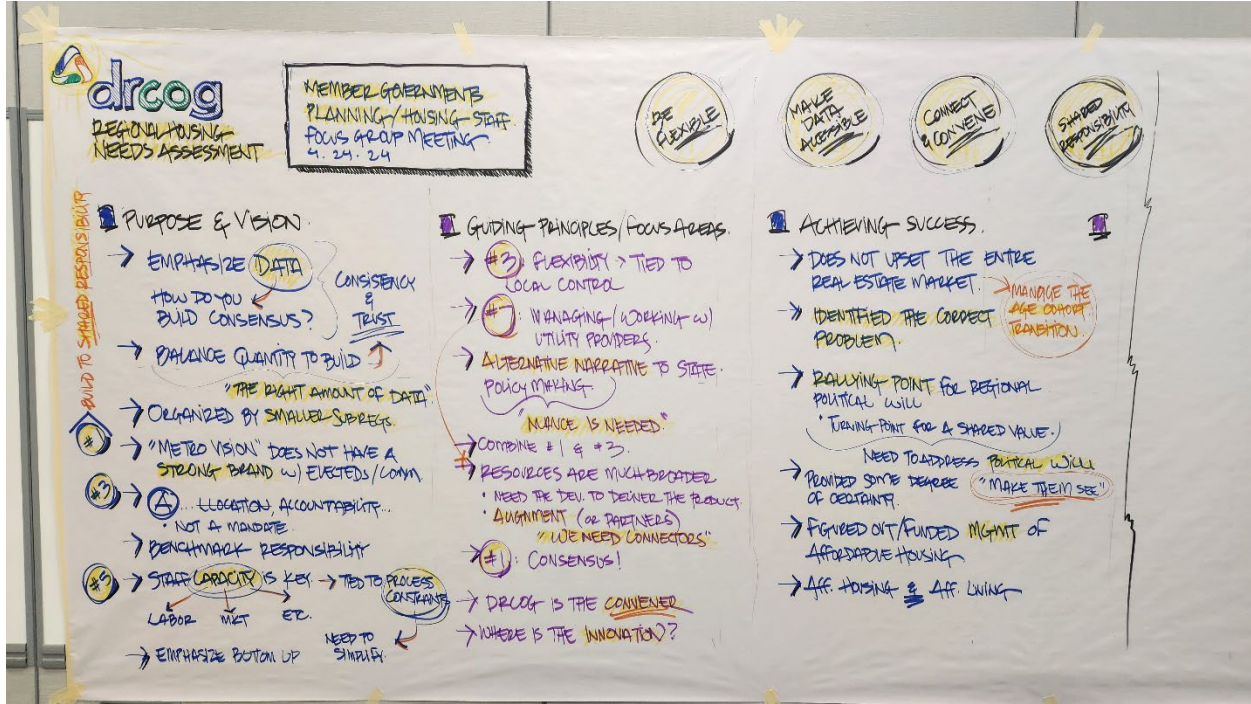 drcog
REGIONAL HOUSING
NEEDS ASSESSMENT
MEMBER GOVERNMENTS
PLANNING/HOUSING STAFF
FOCUS GROUP MEETING
4.24.24
BE
FLEXIBLE
MAKE
DATA
ACCESSIBLE
CONNECT
& CONVENE
SHARED
RESPONSIBILITY
BUILD TO SHARED RESPONSIBILITY
PURPOSE & VISION.
→ EMPHASIZE DATA
HOW DO YOU
BUILD CONSENSUS?
CONSISTENCY
&
TRUST
→ BALANCE QUANTITY TO BUILD
"THE RIGHT AMOUNT OF DATA"
→ ORGANIZED BY SMALLER SUBREGS.
→ "METRO VISION" DOES NOT HAVE A
STRONG BRAND W/ ELECTEDS/COMM.
#3 → A... LLOCATION, ACCOUNTABILITY...
• NOT A MANDATE
→ BENCHMARK RESPONSIBILITY
#5 → STAFF CAPACITY IS KEY → TIED TO PROCESS
CONSTRAINTS
LABOR MKT ETC.
NEED TO
SIMPLIFY.
→ EMPHASIZE BOTTOM UP
GUIDING PRINCIPLES/FOCUS AREAS.
→ #3: FLEXIBILTY > TIED TO
LOCAL CONTROL
: MANAGING/WORKING W/
UTILITY PROVIDERS.
→ ALTERNATIVE NARRATIVE TO STATE
POLICY MAKING
"NUANCE IS NEEDED"
→ COMBINE #1 & #3.
→ RESOURCES ARE MUCH BROADER
• NEED THE DEV. TO DELIVER THE PRODUCT.
• ALIGNMENT (OR PARTNERS)
"WE NEED CONNECTORS"
→ #1: CONSENSUS!
→ DRCOG IS THE CONVENER
→ WHERE IS THE INNOVATION?
ACHIEVING SUCCESS.
→ DOES NOT UPSET THE ENTIRE
REAL ESTATE MARKET.
→ MANAGE THE
AGE COHORT
TRANSITION.
→ IDENTIFIED THE CORRECT
PROBLEM.
→ RALLYING POINT FOR REGIONAL
POLITICAL WILL
• TURNING POINT FOR A SHARED VALUE.
NEED TO ADDRESS POLITICAL WILL
"MAKE THEM SEE"
→ PROVIDED SOME DEGREE
OF CERTAINTY.
→ FIGURED OUT/FUNDED MGMT OF
AFFORDABLE HOUSING
→ AFF. HOUSING & AFF. LIVING